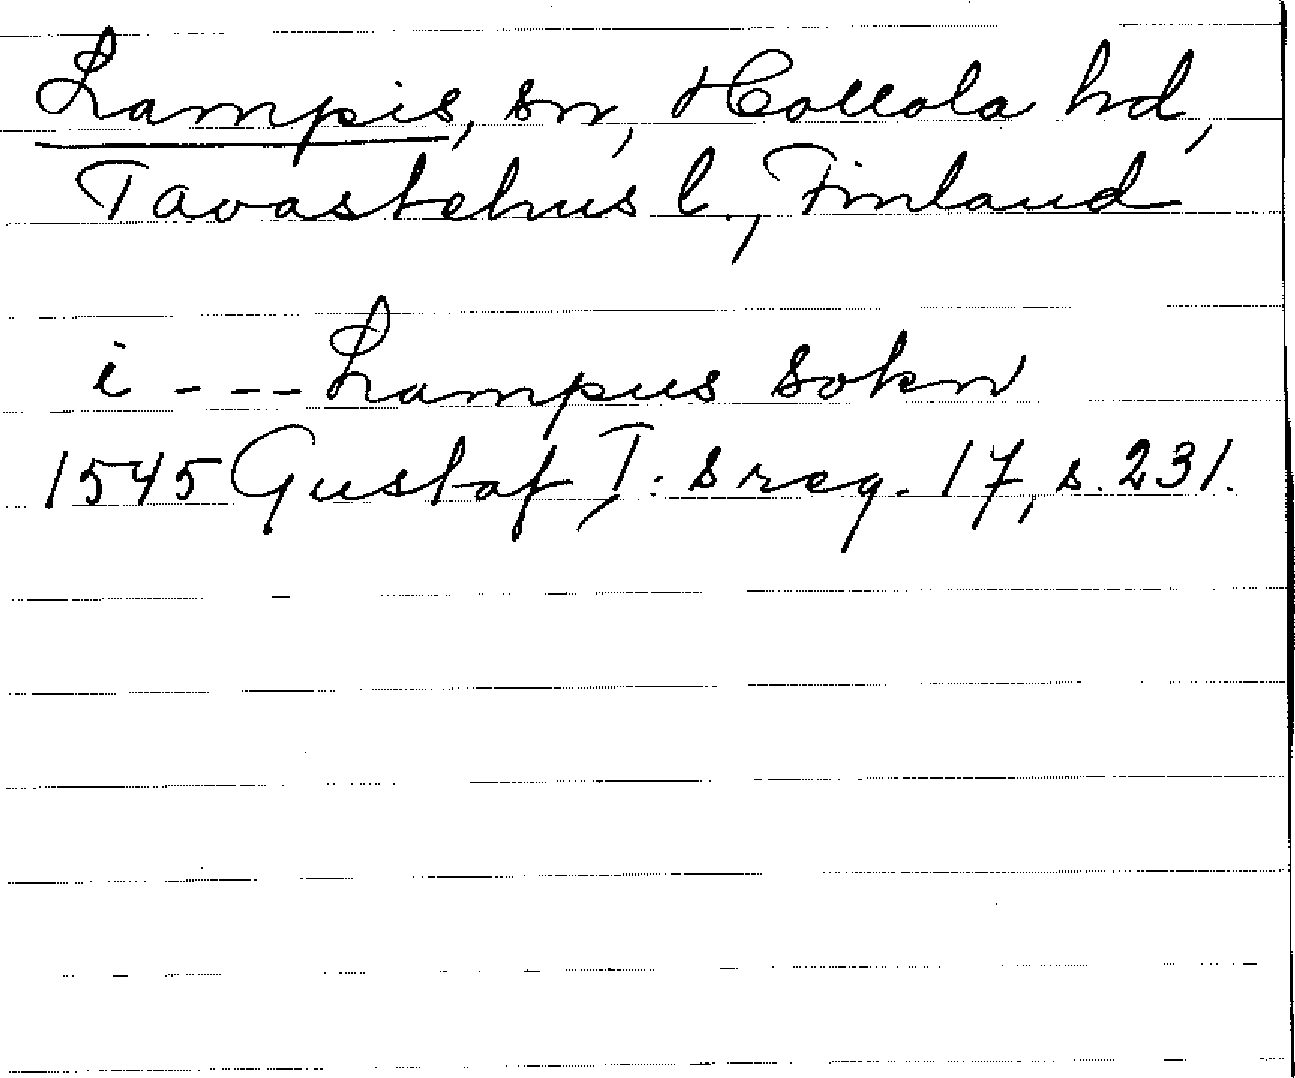 Lampis, sn, Hollola hd,
Tavastehus l., Finland
i --- Lampus sokn
1545 Gustaf I:s reg. 17, s. 231.